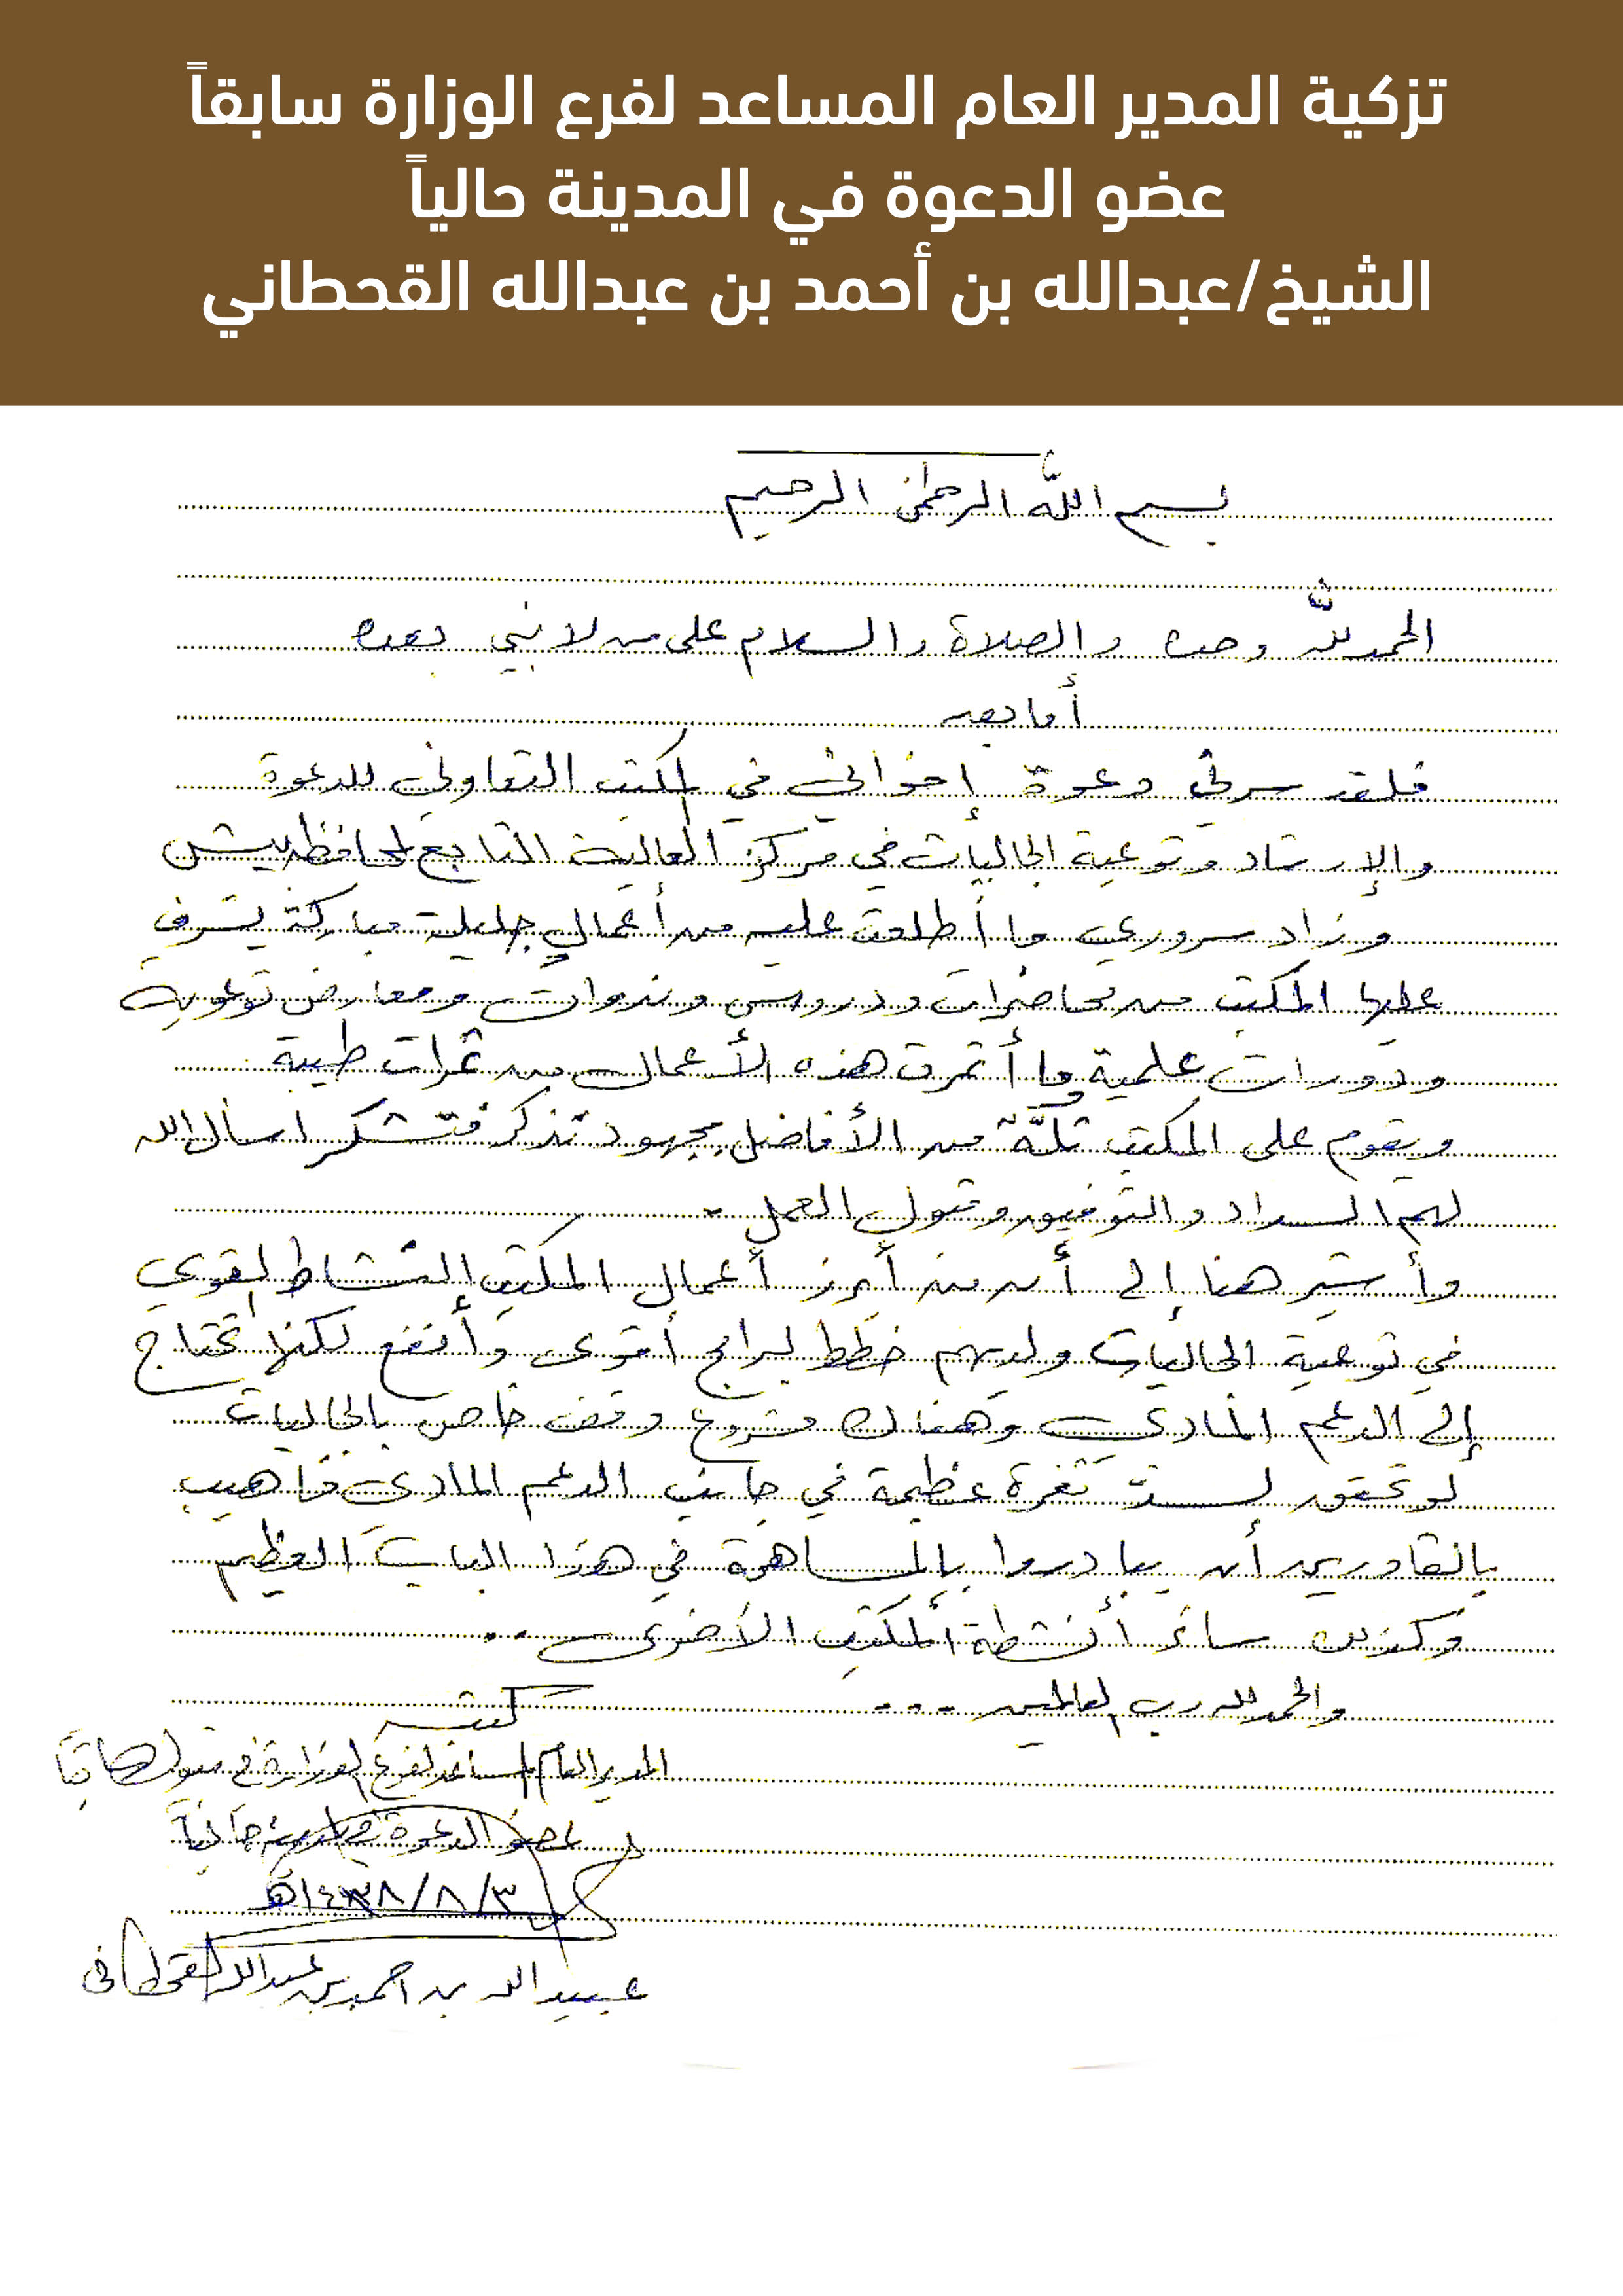 تزكية المدير العام المساعد لفرع الوزارة سابقاً
عضو الدعوة في المدينة حالياً
الشيخ/عبدالله بن أحمد بن عبدالله القحطاني
بسم الله الرحمن الرحيم
الحمد لله وحده والصلاة والسلام على من لا نبي بعده
أما بعد
فلقد سرني دعوة إخواني في المكتب التعاوني للدعوة
والإرشاد وتوعية الجاليات في مركز العالية التابع لمحافظة بيش
وزاد سروري ما أطلعت عليه من أعمال جليلة مباركة يشرف
عليها المكتب من محاضرات ودروس وندوات ومعارض توعوية
ودورات علمية وما أثمرت هذه الأعمال من ثمرات طيبة
ويقوم على المكتب ثلَّة من الأفاضل بجهود تذكر فتشكر اسأل الله
لهم السداد والتوفيق وقبول العمل .
وأشير هنا إلى أن من أبرز أعمال المكتب النشاط القوي
في توعية الجاليات ولديهم خطط لبرامج أقوى وأنفع لكنها تحتاج
إلى الدعم المادي وهناك مشروع وقف خاص بالجاليات
لو تحقق لسدّ ثغرة عظيمة في جانب الدعم المادي فأهيب
بالقادرين أن يبادروا بالمساهمة في هذا الباب العظيم
وكذلك سائر أنشطة المكتب الأخرى ..
والحمد لله رب العالمين ...
كتبه
المدير العام المساعد لفرع الوزارة في تبوك سابقاً
عضو الدعوة في المدينة حالياً
١٤٣٨/٨/٣هـ
عبدالله بن احمد بن عبدالله القحطاني